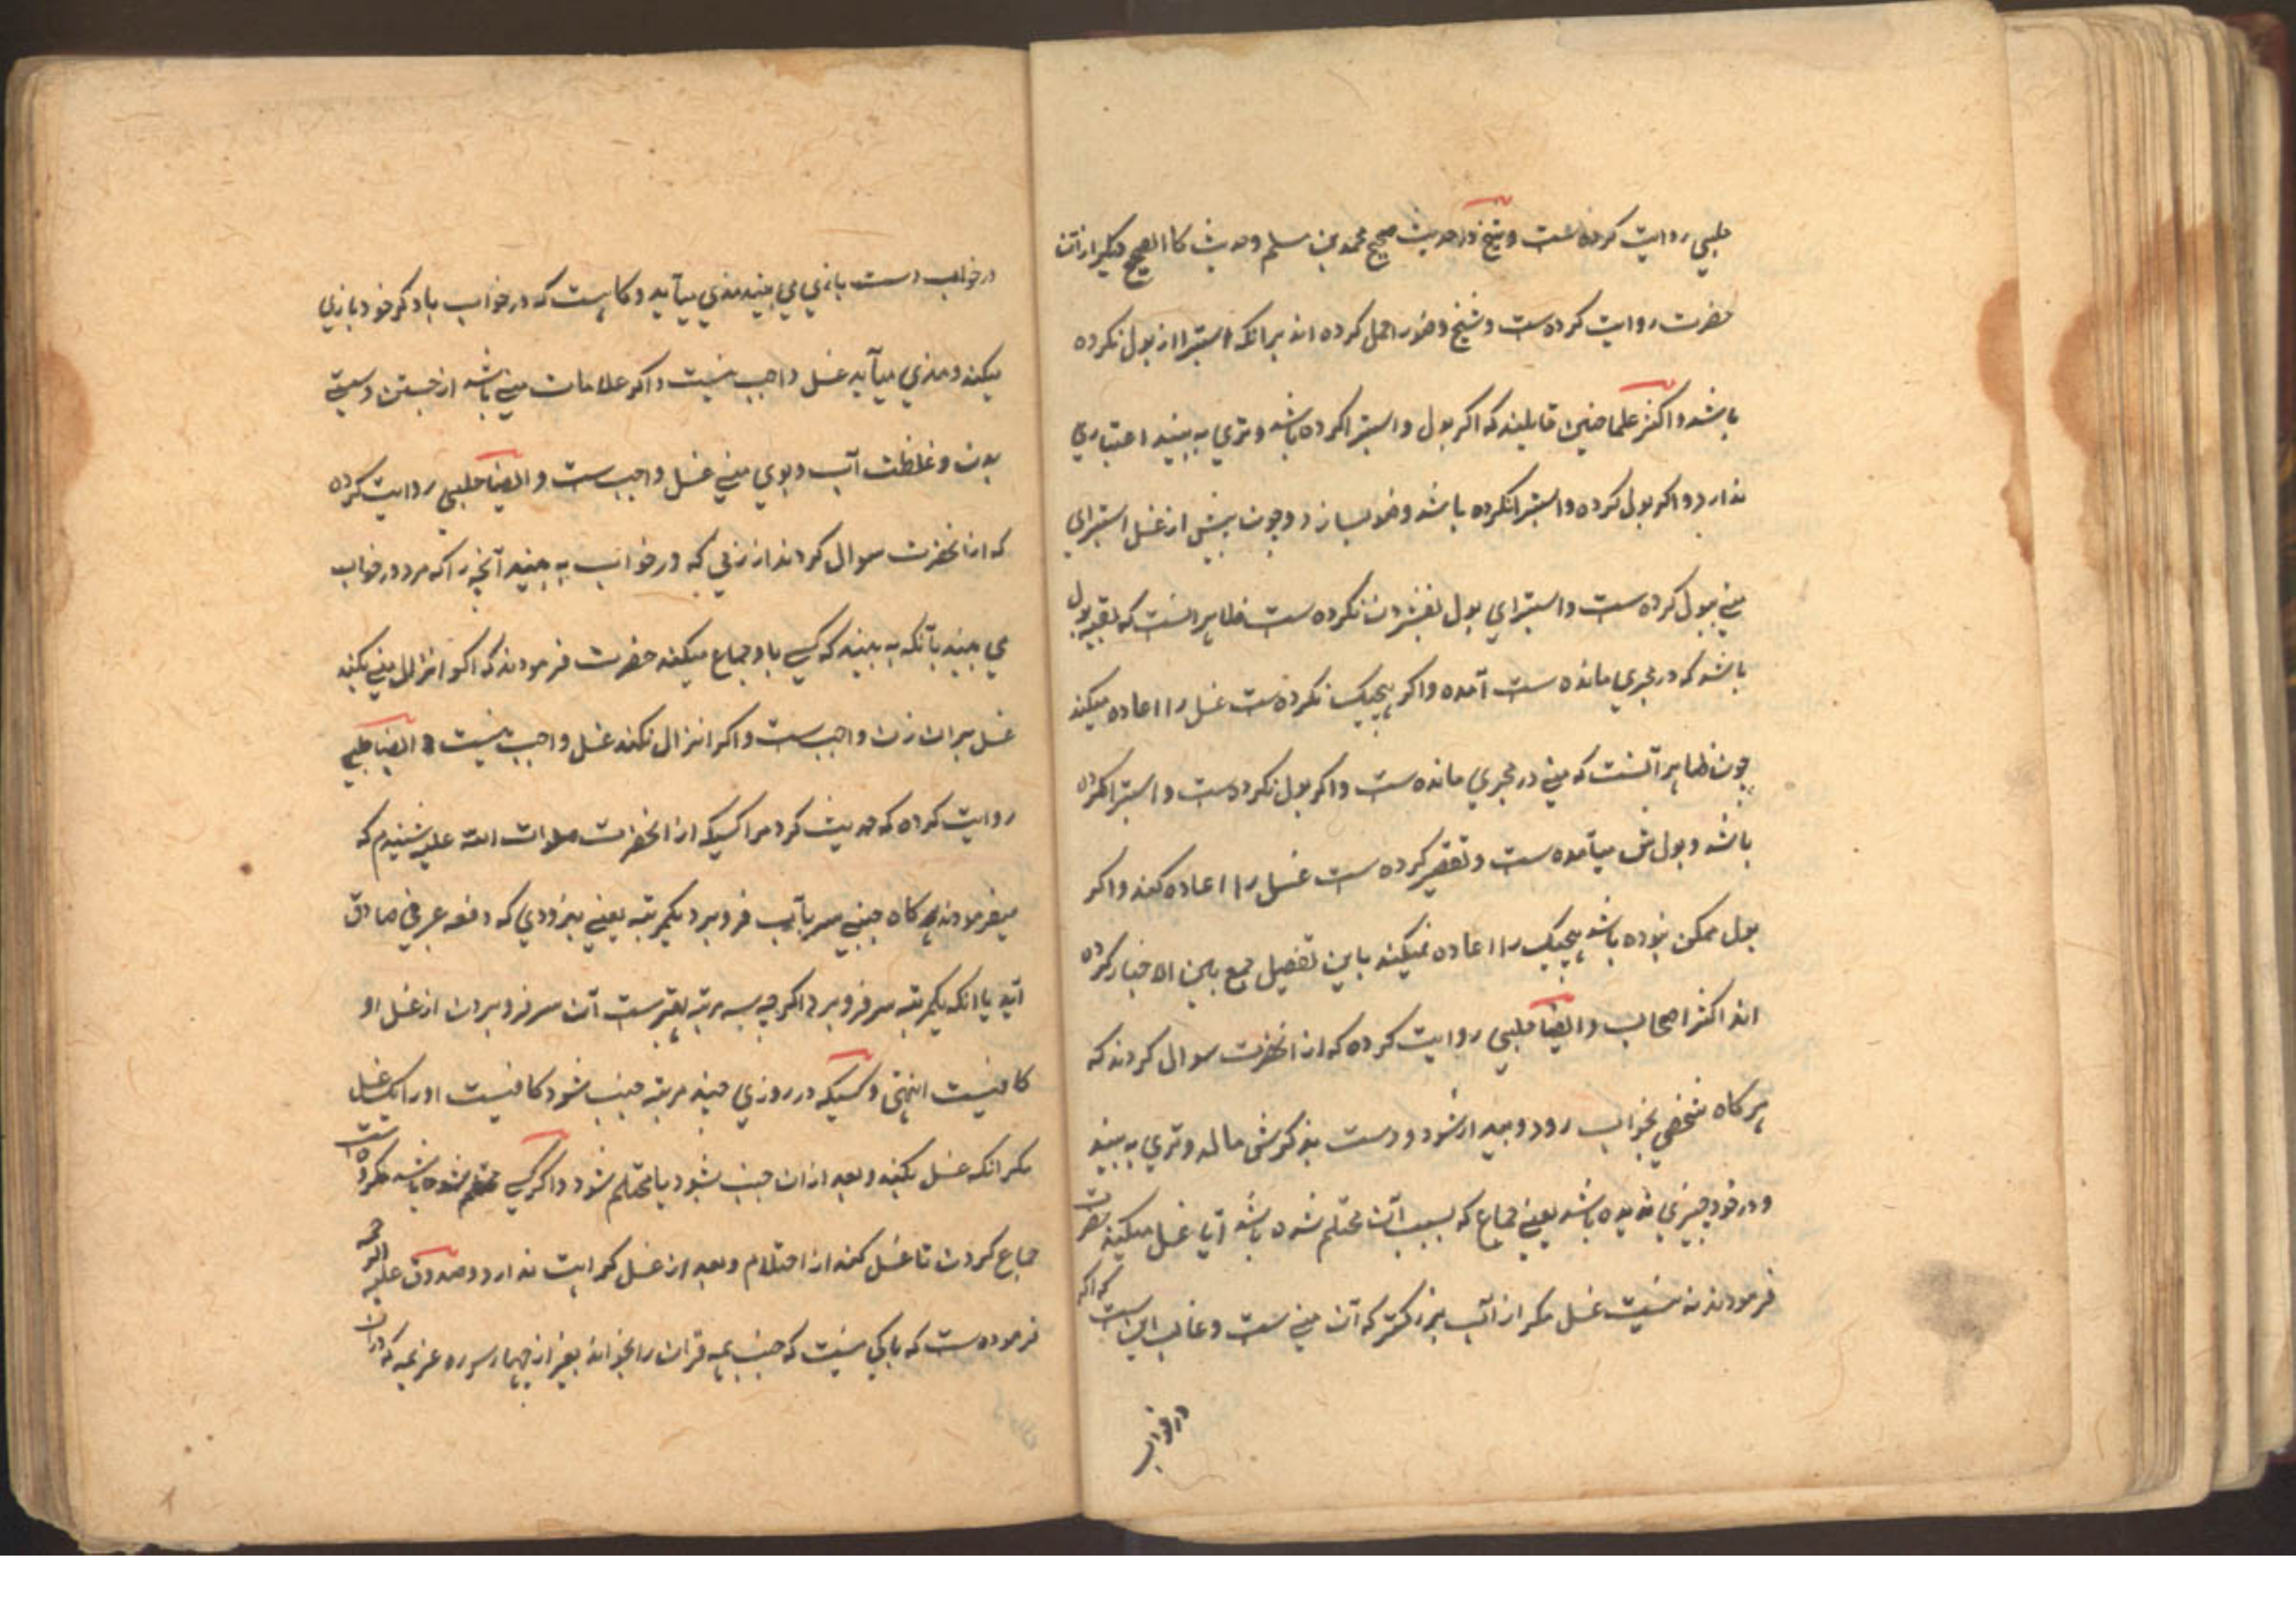 حلبي روايت كرده است و شيخ در حديث صحيح محمد بن مسلم و حديث كالصحيح ديگر از آن
حضرت روايت كرده ست و شيخ وضو را حمل كرده اند برانكه استبرا از بول نكرده
باشد و اكثر علما چنين قايلند كه اكر بول و استبرا كرده باشد و تري به بيند اعتباري
ندارد و اكر بول كرده و استبرا نكرده باشد وضو بسازد و چون پيش از غسل استبراي
مني ببول كرده ست و استبراي بول بفشردن نكرده ست ظاهر انست كه بقيه بول
باشد كه در مجري مانده ست آمده و اكر هيچيك نكرده ست غسل را اعاده ميكند
چون ظاهر آنست كه مني در مجري مانده ست و اكر بول نكرده ست و استبرا كرده
باشد و بولش ميآمده ست و تقصير كرده ست غسل را اعاده كند و اكر
بول ممكن نبوده باشد هيچيك را اعاده نميكند باين تفصيل جمع بين الاخبار كرده
اند اكثر اصحاب و ايضا حلبي روايت كرده كه از انحضرت سوال كردند كه
هر كاه شخصي بخواب رود و بيدار شود و دست بذكرش مالد و تري به بيند
و در خود چيزي نديده باشد يعني جماع كه بسبب آن محتلم شده باشد آيا غسل ميكند حضرت
فرمودند نه نيست غسل مكر از آب بزركتر كه آن مني ست و غالب اين است كه اكر
در خواب
در خواب دست بازي مي بيند مذي ميآيد و كاهست كه در خواب با ذكر خود بازي
ميكند و مذي ميآيد غسل واجب نيست و اكر علامات مني باشد از جستن و سستي
بدن و غلظت آب و بوي مني غسل واجب ست و ايضا حلبي روايت كرده
كه از انحضرت سوال كردند از زني كه در خواب به بيند آنچه را كه مرد در خواب
مي بيند بآنكه به بيند كه كسي با او جماع ميكند حضرت فرمودند كه اكر انزال مني بكند
غسل بر ان زن واجب ست و اكر انزال نكند غسل واجب نيست و ايضا حلبي
روايت كرده كه حديث كرد مرا كسيكه از انحضرت صلوات الله عليه شنيدم كه
ميفرمودند هر كاه جنبي سر بآب فرو برد يكمرتبه يعني بزودي كه دفعه عرفي صادق
آيد يا انكه يكمرتبه سر فرو برد اكر چه سه مرتبه بهتر ست آن سر فرو بردن از غسل او
كافيست انتهي و كسيكه در روزي چند مرتبه جنب شود كافيست او را يك غسل
مكر انكه غسل بكند و بعد از ان جنب شود يا محتلم شود و اكر كسي محتلم شده باشد مكروه است
جماع كردن تا غسل كند از احتلام و بعد از غسل كراهت ندارد و صدوق عليه الرحمه
فرموده ست كه باكي نيست كه جنب همه قران را بخواند بغير از چهار سوره عزيمه كه در ان